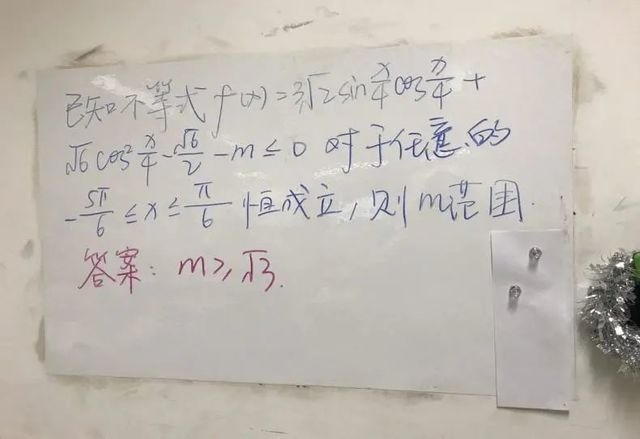 已知不等式 f(x)=3√2 sin x/4 cos x/4 +
√6 cos² x/4 - √6/2 - m ≤ 0 对于任意的
-5π/6 ≤ x ≤ π/6 恒成立,则m范围.
答案: m≥√3.